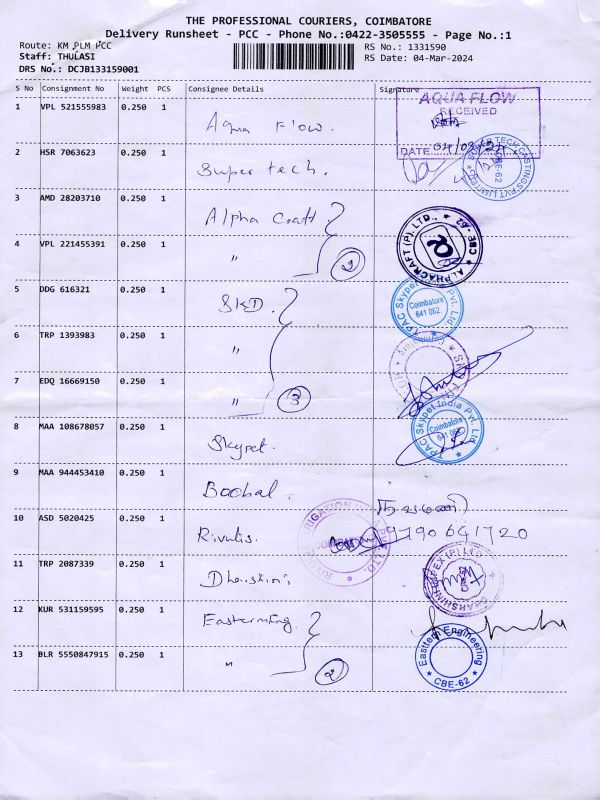 THE PROFESSIONAL COURIERS, COIMBATORE
Delivery Runsheet - PCC - Phone No.:0422-3505555 - Page No.:1
Route: KM PLM PCC
RS No.: 1331590
Staff: THULASI
RS Date: 04-Mar-2024
DRS No.: DCJB133159001
S No Consignment No Weight PCS Consignee Details Signature
1 VPL 521555983 0.250 1 Aqua Flow.
AQUA FLOW
RECEIVED
DATE 04/03/24
2 HSR 7063623 0.250 1 Super tech.
TECH CASTINGS PVT LIMITED
CBE-62
3 AMD 28203710 0.250 1 Alpha Craft
4 VPL 221455391 0.250 1 "
2
ALPHACRAFT (P). LTD., CBE-62
5 DDG 616321 0.250 1 SKD.
TPAC Skypet India Pvt. Ltd.
Coimbatore
641 062.
6 TRP 1393983 0.250 1 "
7 EDQ 16669150 0.250 1 "
3
8 MAA 108678057 0.250 1 Skypet.
TPAC Skypet India Pvt. Ltd.
Coimbatore
641 062.
9 MAA 944453410 0.250 1
10 ASD 5020425 0.250 1 Rivulis.
9790641720
11 TRP 2087339 0.250 1
12 KUR 531159595 0.250 1
13 BLR 5550847915 0.250 1 "
2
Easttech Engineering
CBE-62